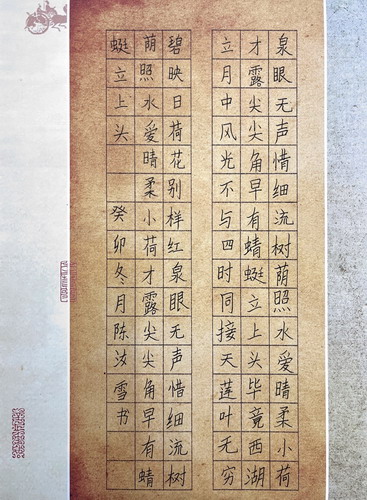 泉眼无声惜细流树荫照水爱晴柔小荷
才露尖尖角早有蜻蜓立上头毕竟西湖
立月中风光不与四时同接天莲叶无穷
碧映日荷花别样红泉眼无声惜细流树
荫照水爱晴柔小荷才露尖尖角早有蜻
蜓立上头 癸卯冬月陈汝雪书